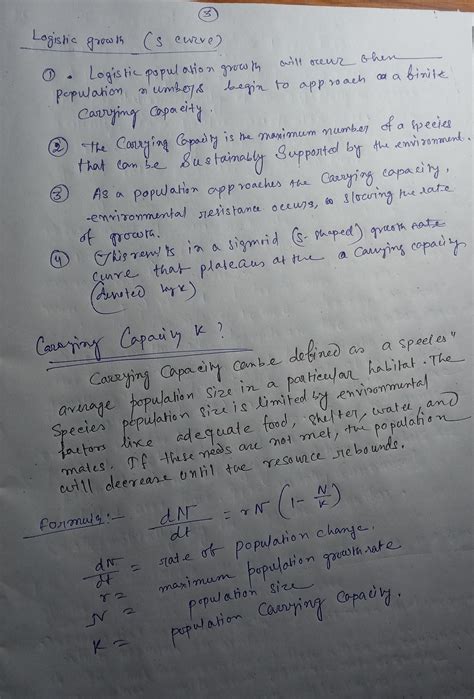 3
Logistic growth (S curve)
① • Logistic population growth will occur when
population numbers begin to approach a finite
carrying capacity.
② The Carrying Capacity is the maximum number of a species
that can be sustainably supported by the environment.
③ As a population approaches the carrying capacity,
environmental resistance occurs, slowing the rate
of growth.
④ This results in a sigmoid (S-shaped) growth rate
curve that plateaus at the carrying capacity
(denoted by k)
Carrying Capacity K ?
Carrying Capacity can be defined as a species"
average population size in a particular habitat. The
Species population size is limited by environmental
factors like adequate food, shelter, water, and
mates. If these needs are not met, the population
will decrease until the resource rebounds.
Formula:- dN/dt = rN (1 - N/K)
dN/dt = rate of population change.
r = maximum population growth rate
N = population size
K = population Carrying Capacity.